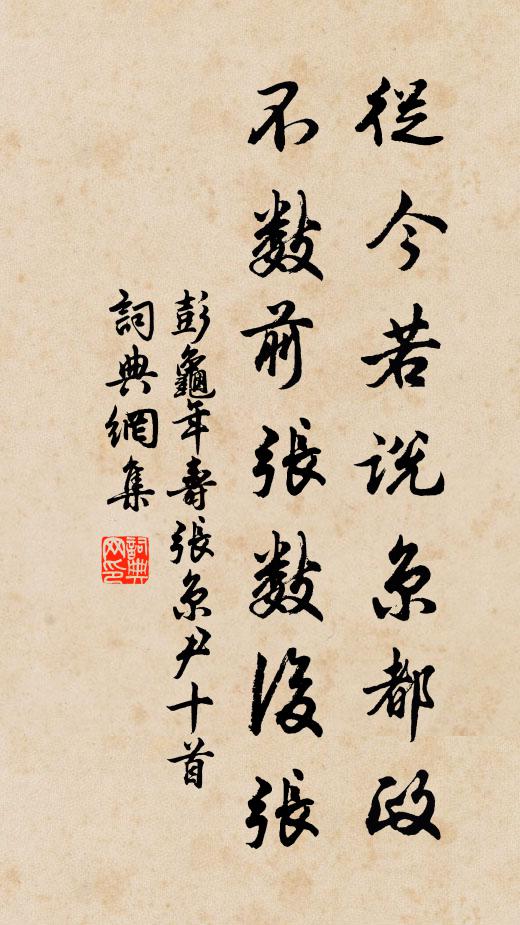 從今若說京都政
不數前張數後張
彭龜年壽張京尹十首
詞典網集
詞典網印